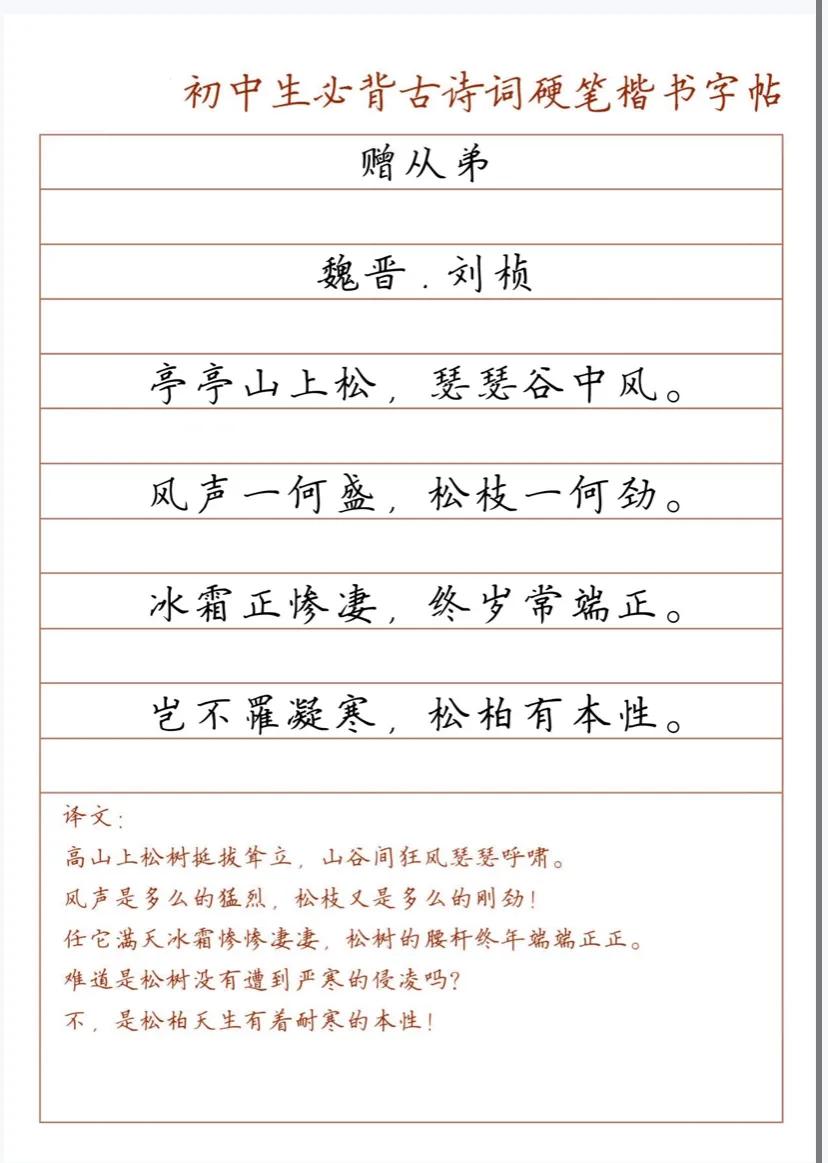 初中生必背古诗词硬笔楷书字帖
赠从弟
魏晋.刘桢
亭亭山上松,瑟瑟谷中风。
风声一何盛,松枝一何劲。
冰霜正惨凄,终岁常端正。
岂不罹凝寒,松柏有本性。
译文:
高山上松树挺拔耸立,山谷间狂风瑟瑟呼啸。
风声是多么的猛烈,松枝又是多么的刚劲!
任它满天冰霜惨惨凄凄,松树的腰杆终年端端正正。
难道是松树没有遭到严寒的侵凌吗?
不,是松柏天生有着耐寒的本性!